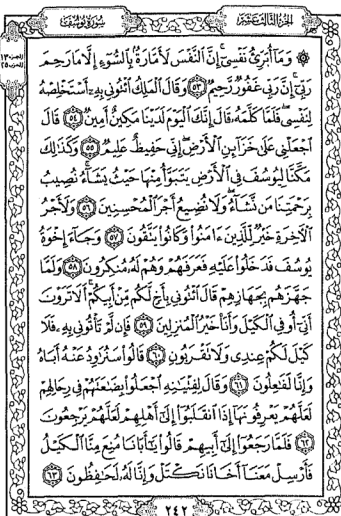 الجزء الثالث عشر
سورة يوسف
۞ وَمَآ أُبَرِّئُ نَفْسِىٓ إِنَّ ٱلنَّفْسَ لَأَمَّارَةٌۢ بِٱلسُّوٓءِ إِلَّا مَا رَحِمَ
رَبِّىٓ إِنَّ رَبِّى غَفُورٌ رَّحِيمٌ ٥٣ وَقَالَ ٱلْمَلِكُ ٱئْتُونِى بِهِۦٓ أَسْتَخْلِصْهُ
لِنَفْسِى فَلَمَّا كَلَّمَهُۥ قَالَ إِنَّكَ ٱلْيَوْمَ لَدَيْنَا مَكِينٌ أَمِينٌ ٥٤ قَالَ
ٱجْعَلْنِى عَلَىٰ خَزَآئِنِ ٱلْأَرْضِ إِنِّى حَفِيظٌ عَلِيمٌ ٥٥ وَكَذَٰلِكَ
مَكَّنَّا لِيُوسُفَ فِى ٱلْأَرْضِ يَتَبَوَّأُ مِنْهَا حَيْثُ يَشَآءُ نُصِيبُ
بِرَحْمَتِنَا مَن نَّشَآءُ وَلَا نُضِيعُ أَجْرَ ٱلْمُحْسِنِينَ ٥٦ وَلَأَجْرُ
ٱلْأَخِرَةِ خَيْرٌ لِّلَّذِينَ ءَامَنُوا۟ وَكَانُوا۟ يَتَّقُونَ ٥٧ وَجَآءَ إِخْوَةُ
يُوسُفَ فَدَخَلُوا۟ عَلَيْهِ فَعَرَفَهُمْ وَهُمْ لَهُۥ مُنكِرُونَ ٥٨ وَلَمَّا
جَهَّزَهُم بِجَهَازِهِمْ قَالَ ٱئْتُونِى بِأَخٍ لَّكُم مِّنْ أَبِيكُمْ أَلَا تَرَوْنَ
أَنِّىٓ أُوفِى ٱلْكَيْلَ وَأَنَا۠ خَيْرُ ٱلْمُنزِلِينَ ٥٩ فَإِن لَّمْ تَأْتُونِى بِهِۦ فَلَا
كَيْلَ لَكُمْ عِندِى وَلَا تَقْرَبُونِ ٦٠ قَالُوا۟ سَنُرَٰوِدُ عَنْهُ أَبَاهُ
وَإِنَّا لَفَٰعِلُونَ ٦١ وَقَالَ لِفِتْيَٰنِهِ ٱجْعَلُوا۟ بِضَٰعَتَهُمْ فِى رِحَالِهِمْ
لَعَلَّهُمْ يَعْرِفُونَهَآ إِذَا ٱنقَلَبُوٓا۟ إِلَىٰٓ أَهْلِهِمْ لَعَلَّهُمْ يَرْجِعُونَ
٦٢ فَلَمَّا رَجَعُوٓا۟ إِلَىٰٓ أَبِيهِمْ قَالُوا۟ يَٰٓأَبَانَا مُنِعَ مِنَّا ٱلْكَيْلُ
فَأَرْسِلْ مَعَنَآ أَخَانَا نَكْتَلْ وَإِنَّا لَهُۥ لَحَٰفِظُونَ ٦٣
٢٤٢